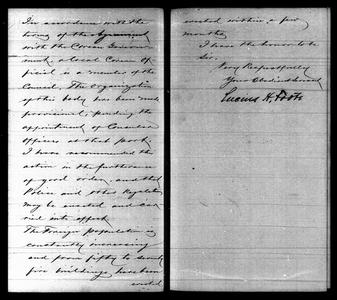 In accordance with the
terms of the Agreement
with the Corean Govern-
ment, a local Corean Of-
ficial is a member of the
Council. The Organization
of this body has been made
provisional, pending the
appointment of Consular
Officers at that port.
I have recommended the
action in the furtherance
of good order, and that
Police and other Regulations
may be enacted and car-
ried into effect.
The Foreign population is
constantly increasing
and from fifty to seventy
five buildings have been
erected
erected within a few
months.
I have the honor to be
Sir,
Very Respectfully
Your Obedient Servant
Lucius H. Foote